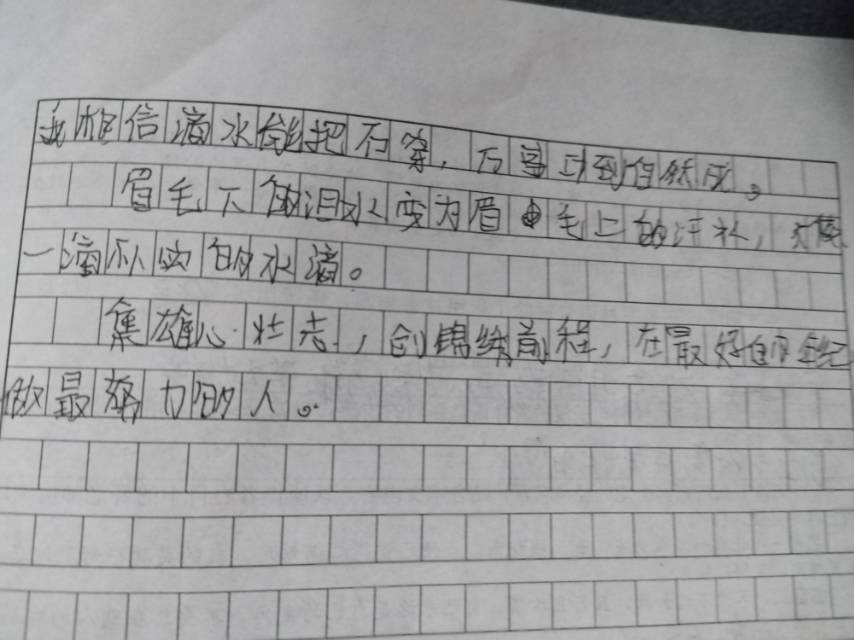 我相信滴水能把石穿，万事功到自然成。
眉毛下的泪水变为眉毛上的汗水，才使
一滴不凶的水滴。
集雄心壮志，创锦绣前程，在最好的年纪
做最努力的人。